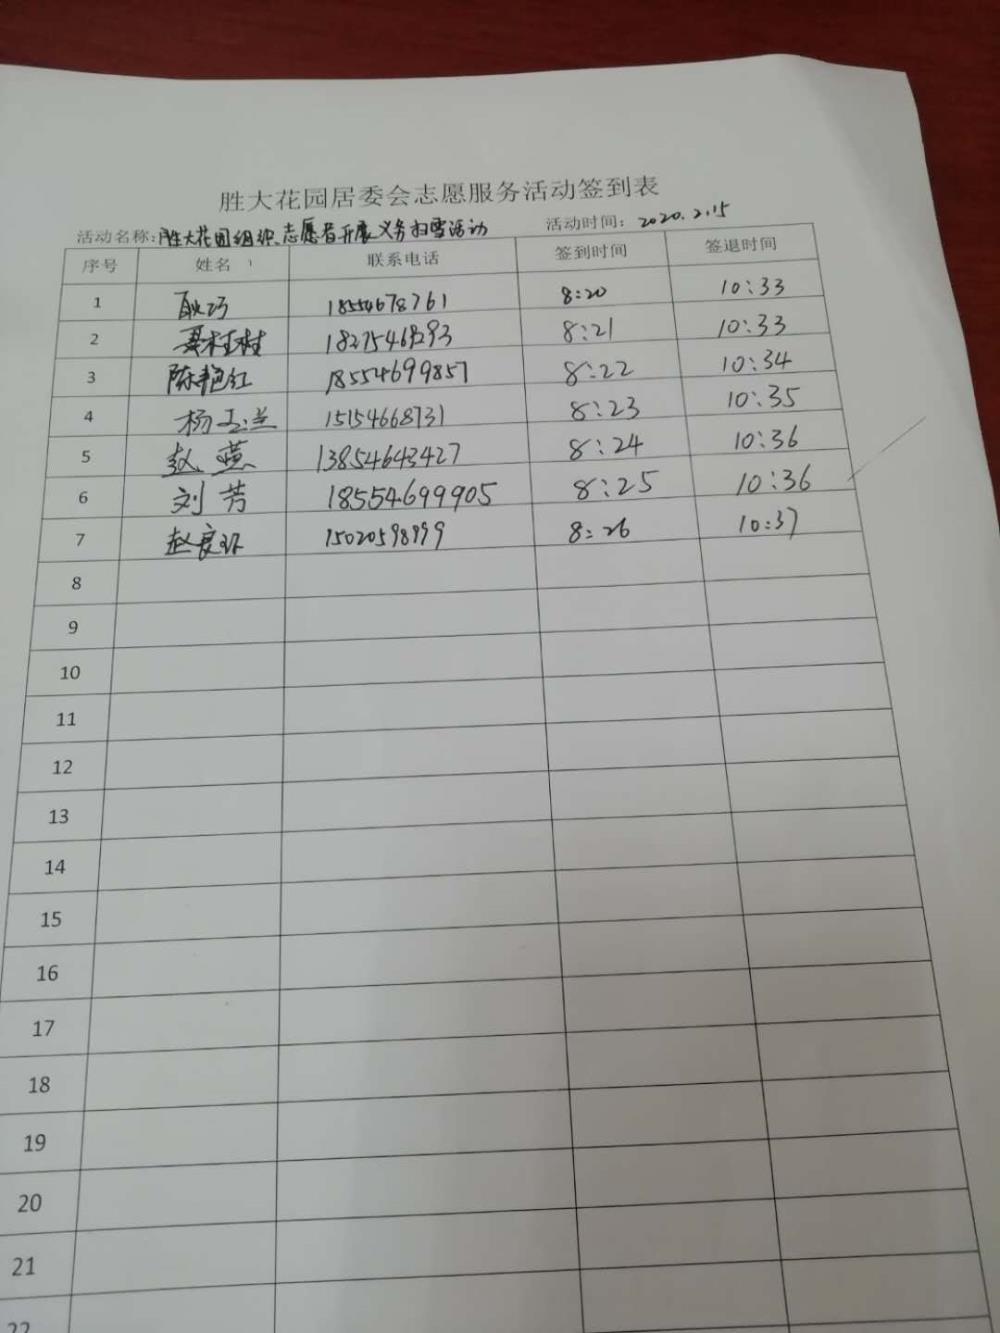 胜大花园居委会志愿服务活动签到表
活动名称:胜大花园组织志愿者开展义务扫雪活动 活动时间: 2020.2.15
序号 姓名 联系电话 签到时间 签退时间
1 耿巧 18554678761 8:20 10:33
2 聂桂树 10:33 8:21
3 陈艳红 18554699857 8:22 10:34
4 杨玉兰 15154668731 8:23 10:35
5 赵燕 13854643427 8:24 10:36
6 刘芳 18554699905 8:25 10:36
7 赵良 15020598999 8:26 10:37
8
9
10
11
12
13
14
15
16
17
18
19
20
21
22